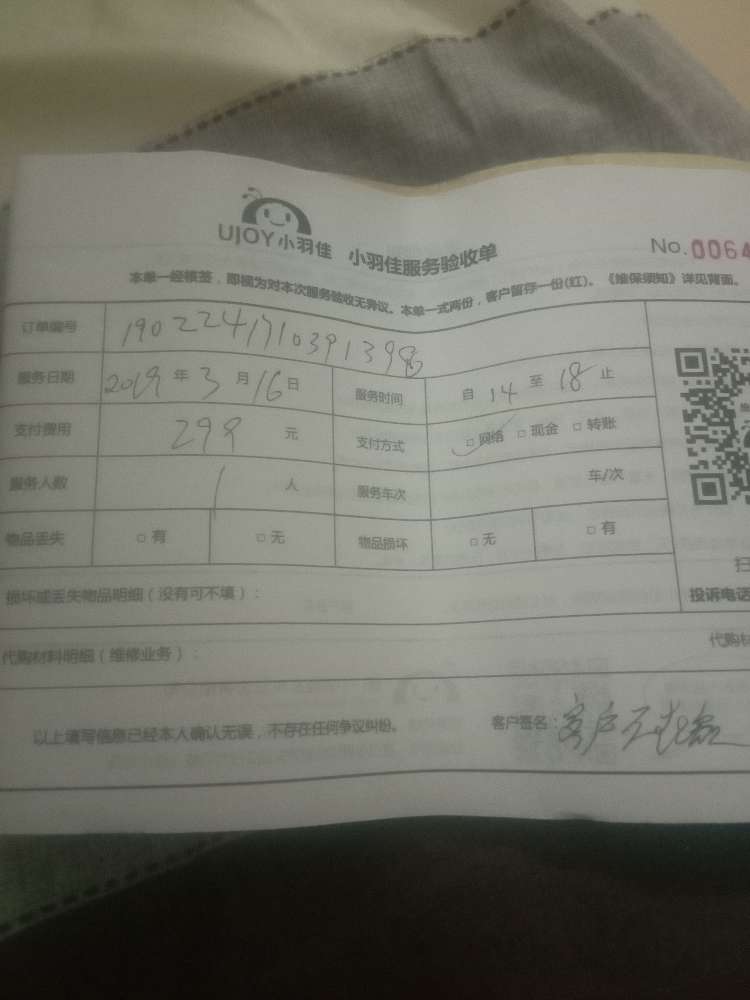 UJOY小羽佳 小羽佳服务验收单
No.0064
本单一经核签，即视为对本次服务验收无异议。本单一式两份，客户留存一份(红)。《维保须知》详见背面。
订单编号
服务日期 2019 年 3 月 16 日 服务时间 自 14 至 18 止
支付费用 299 元 支付方式 □网络 □现金 □转账
服务人数 1 人 服务车次 车/次
物品丢失 □有 □无 物品损坏 □无 □有
扫
损坏或丢失物品明细（没有可不填）：
投诉电话
代购材料明细（维修业务）：
代购材
以上填写信息已经本人确认无误，不存在任何争议纠纷。
客户签名：客户